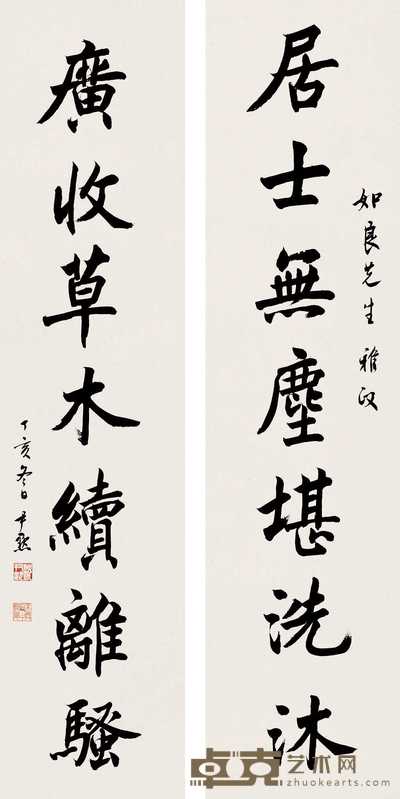 如良先生雅政
居士無塵堪洗沐
廣收草木續離騷
丁亥冬日尹默
卓克艺术网
zhuokearts.com